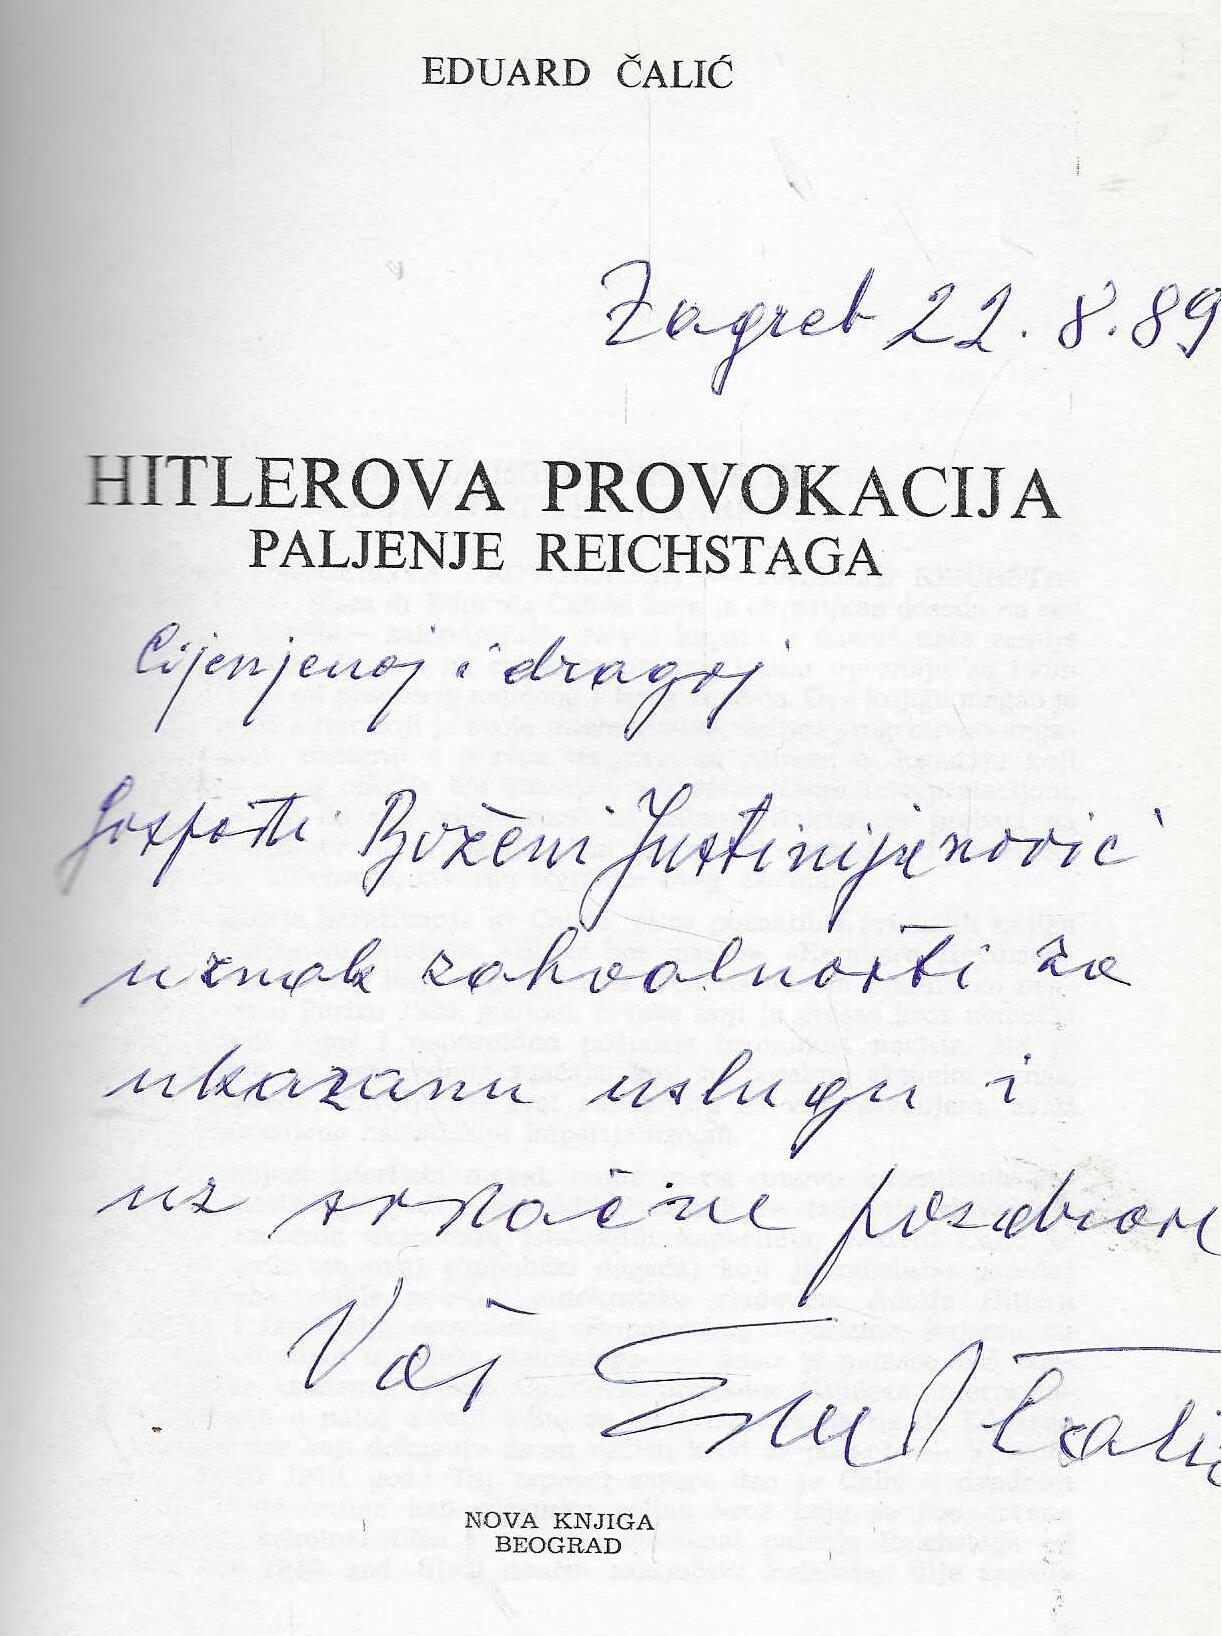 EDUARD ČALIĆ
Zagreb 22. 8. 89
HITLEROVA PROVOKACIJA
PALJENJE REICHSTAGA
Cijenjenoj i dragoj
Gospođi Boženi Justinijanović
u znak zahvalnosti za
ukazanu uslugu i
uz srdačne pozdrave
Vaš Eduard Čalić
NOVA KNJIGA
BEOGRAD